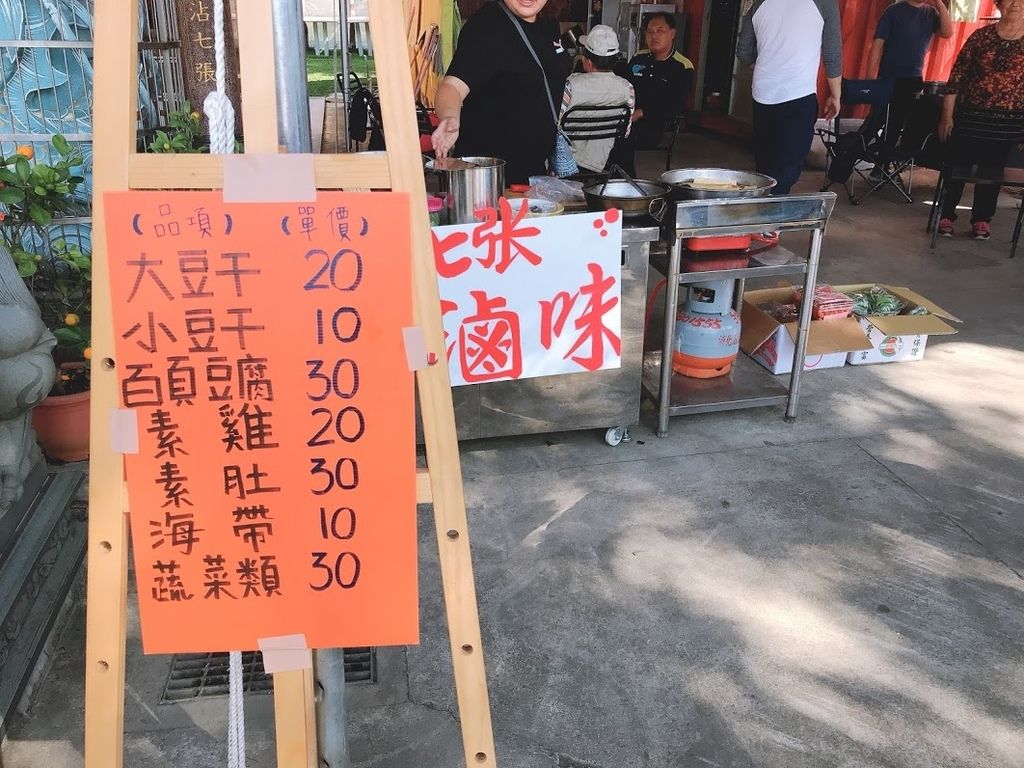 沾七張
(品項) (單價)
大豆干 20
小豆干 10
百頁豆腐 30
素雞 20
素肚 30
海帶 10
蔬菜類 30
七张
滷味